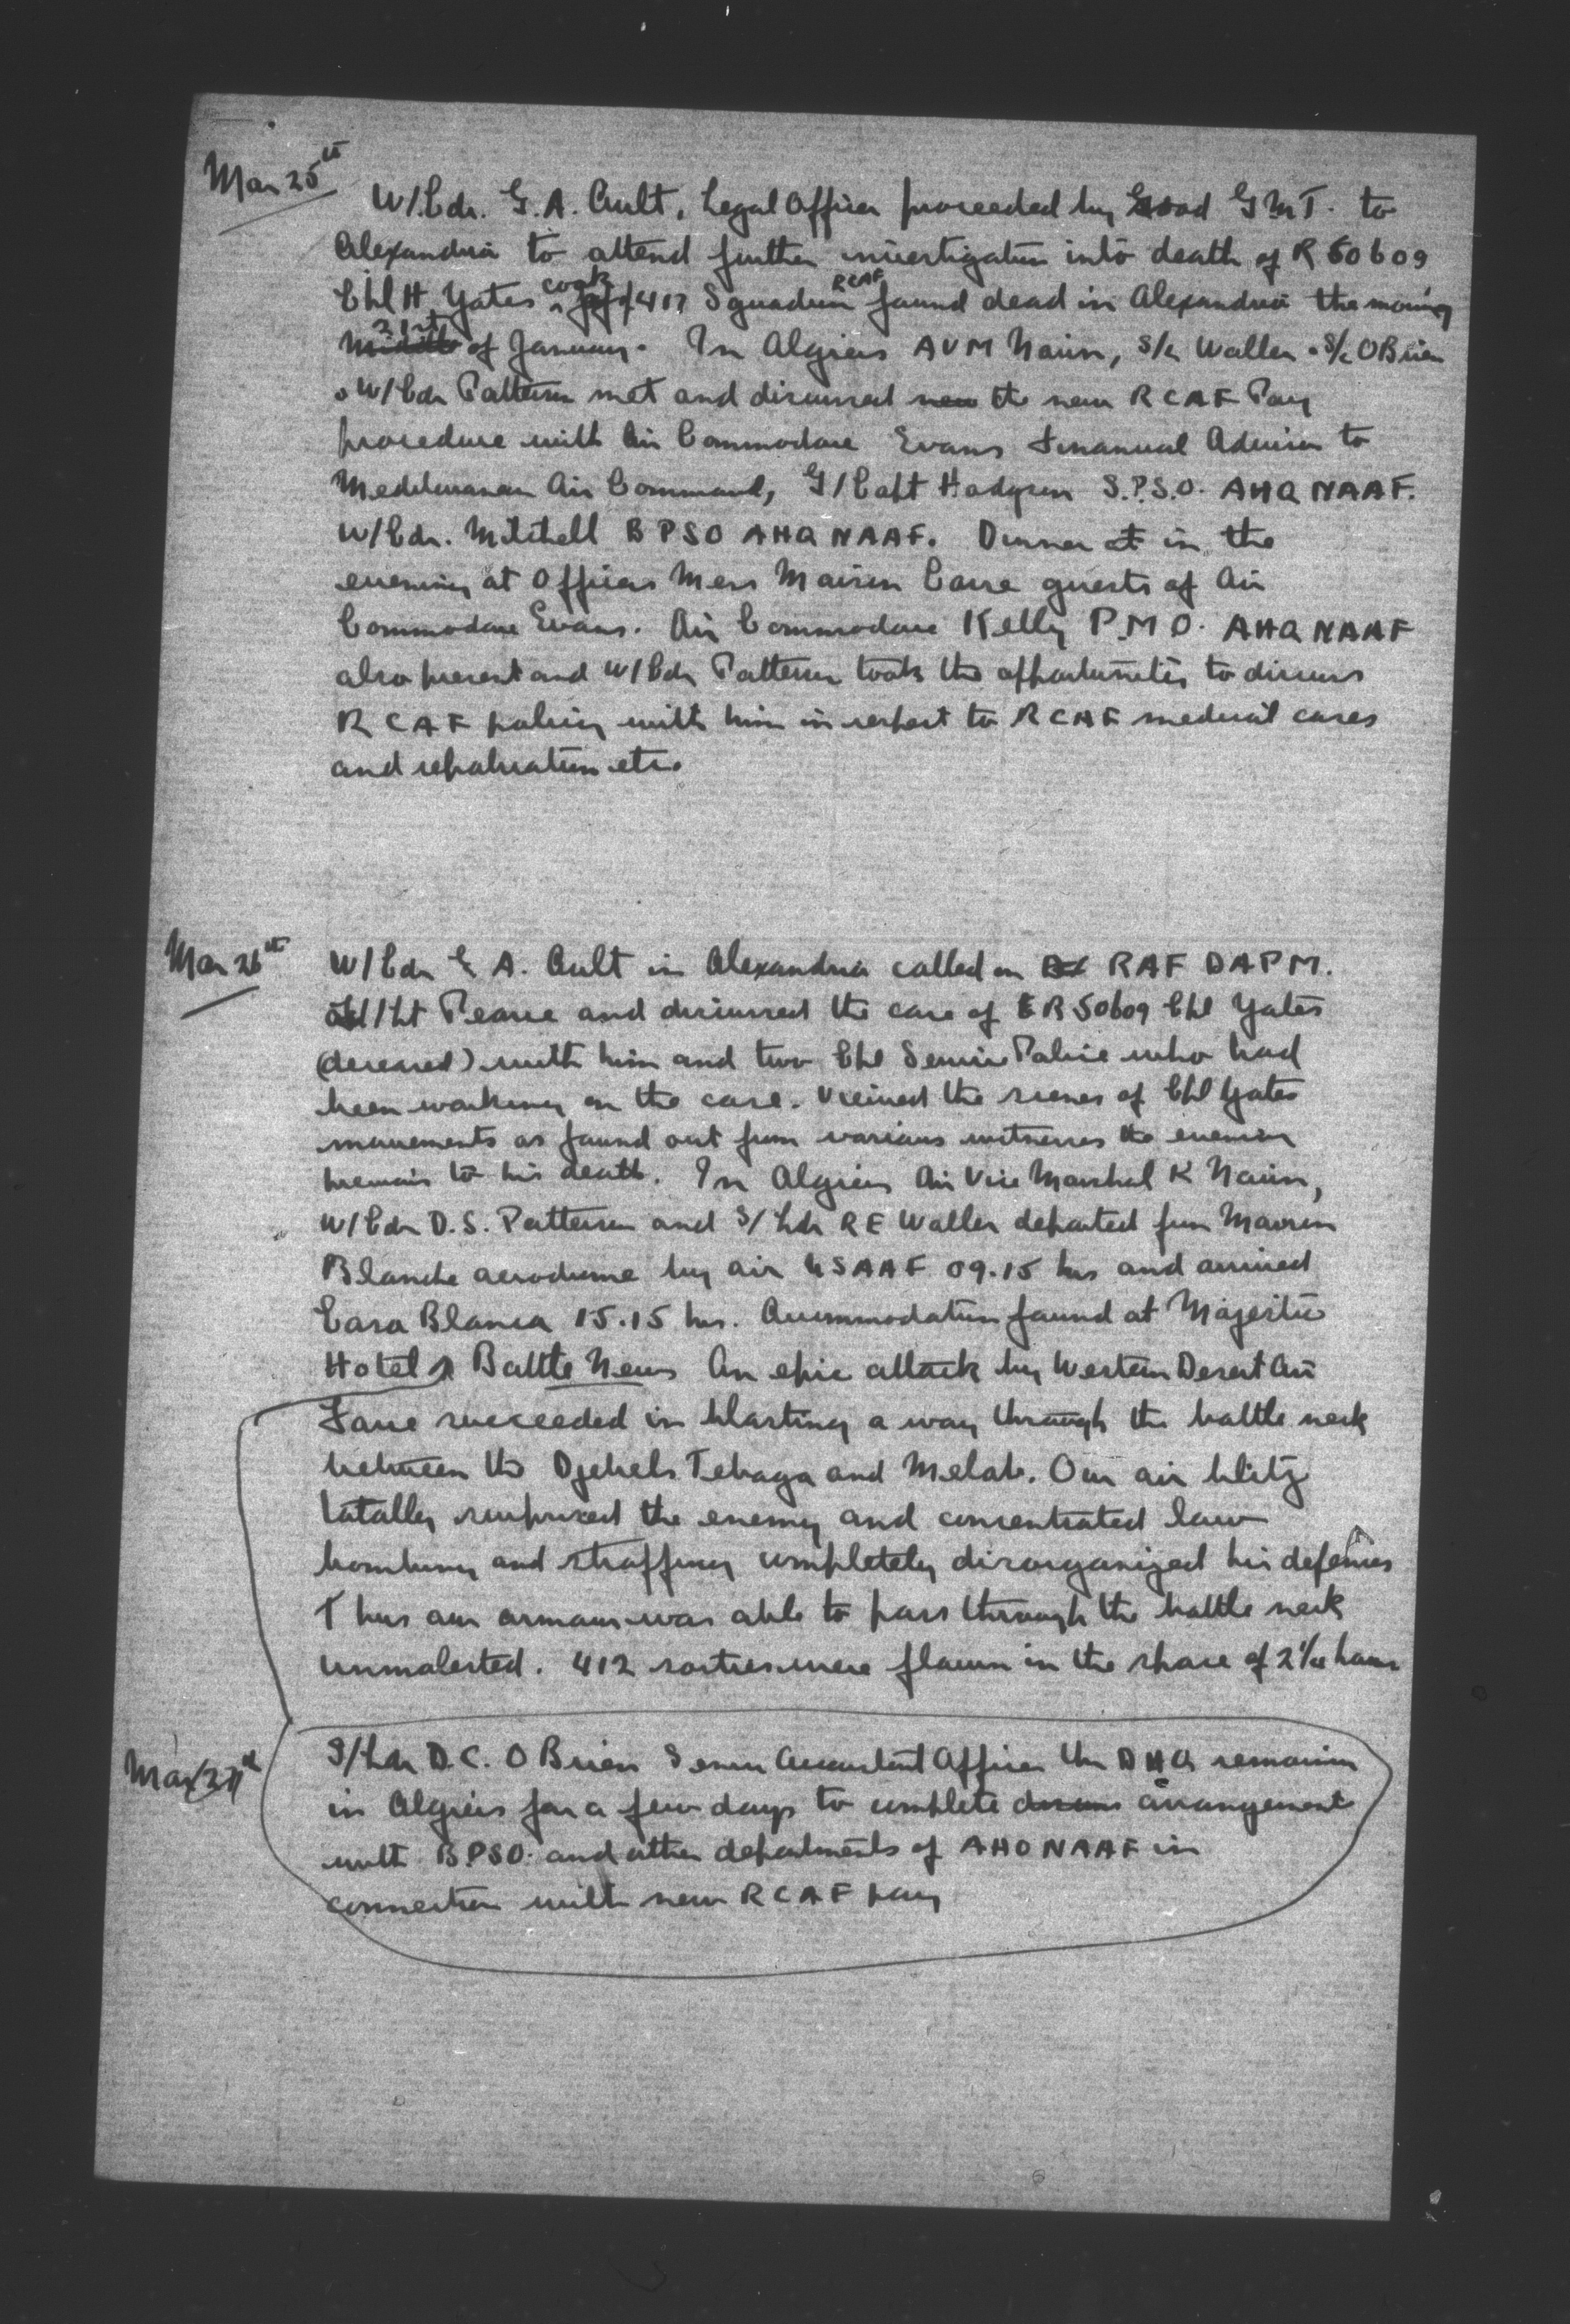 Mar 25th
W/Cdr. G.A. Ault, Legal Officer proceeded by road GMT. to
Alexandria to attend further investigation into death of R50609
Cpl H. Yates cook of 417 Squadron RCAF found dead in Alexandria the morning
21st of January. In Algiers AVM Nairn, S/L Waller & S/L OBrien
& W/Cdr Patterson met and discussed the new RCAF Pay
procedure with Air Commodore Evans Financial Adviser to
Mediterranean Air Command, G/Capt Hodgson S.P.S.O. AHQ NAAF.
W/Cdr. Mitchell BPSO AHQ NAAF. Dinner in the
evening at Officers Mess Maison guests of Air
Commodore Evans. Air Commodore Kelly P.M.O. AHQ NAAF
also present and W/Cdr Patterson took the opportunity to discuss
RCAF policy with him in respect to RCAF medical cases
and repatriation etc.
Mar 26th
W/Cdr G A. Ault in Alexandria called on RAF DAPM.
/Lt Pearce and discussed the case of R50609 Cpl Yates
(deceased) with him and two Cpl Service Police who had
been working on the case. Viewed the scenes of Cpl Yates
movements as found out from various witnesses the evening
previous to his death. In Algiers Air Vice Marshal K Nairn,
W/Cdr D.S. Patterson and S/Ldr RE Waller departed from Maison
Blanche aerodrome by air USAAF 09.15 hrs and arrived
Casa Blanca 15.15 hrs. Accommodation found at Majestic
Hotel Battle News An epic attack by Western Desert Air
Force succeeded in blasting a way through the bottle neck
between the Djebels Tebaga and Melab. Our air blitz
totally surprised the enemy and concentrated low
bombing and straffing completely disorganized his defences
Thus our armour was able to pass through the bottle neck
unmolested. 412 sorties were flown in the space of 2 1/4 hours
Mar 27th
S/Ldr D.C. O Brien Senior Accountant Officer this DHQ remaining
in Algiers for a few days to complete arrangements
with BPSO. and other departments of AHQ NAAF in
connection with new RCAF pay